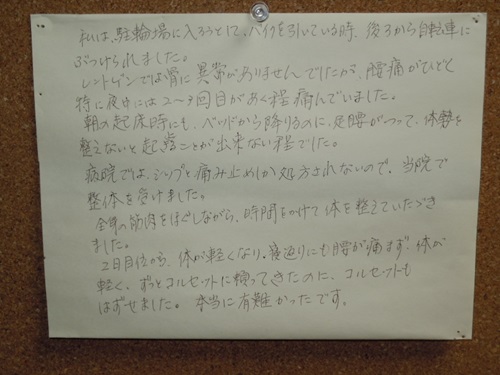 私は、駐輪場に入ろうとして、バイクを引いている時、後ろから自転車に
ぶつけられました。
レントゲンでは骨に異常がありませんでしたが、腰痛がひどく
特に夜中には2〜3回目があく程痛んでいました。
朝の起床時にも、ベッドから降りるのに、足腰がつって、体勢を
整えないと起きることが出来ない程でした。
病院では、シップと痛み止めしか処方されないので、当院で
整体を受けました。
全身の筋肉をほぐしながら、時間をかけて体を整えていただき
ました。
2日目位から、体が軽くなり、寝返りにも腰が痛まず、体が
軽く、ずっとコルセットに頼ってきたのに、コルセットも
はずせました。本当に有難かったです。